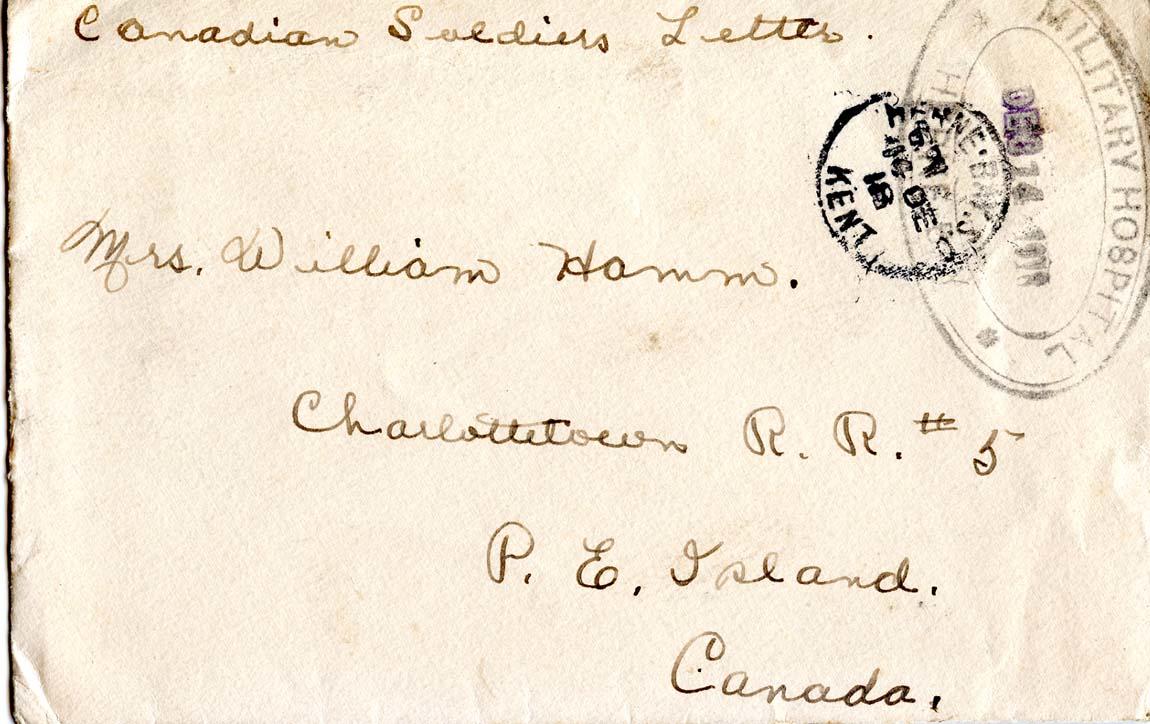 Canadian Soldiers Letter.
MILITARY HOSPITAL
DEC 14 1918
HERNE·BAY.S.O
DE
18
KENT
Mrs. William Hamm.
Charlottetown R. R. # 5
P. E. Island.
Canada.